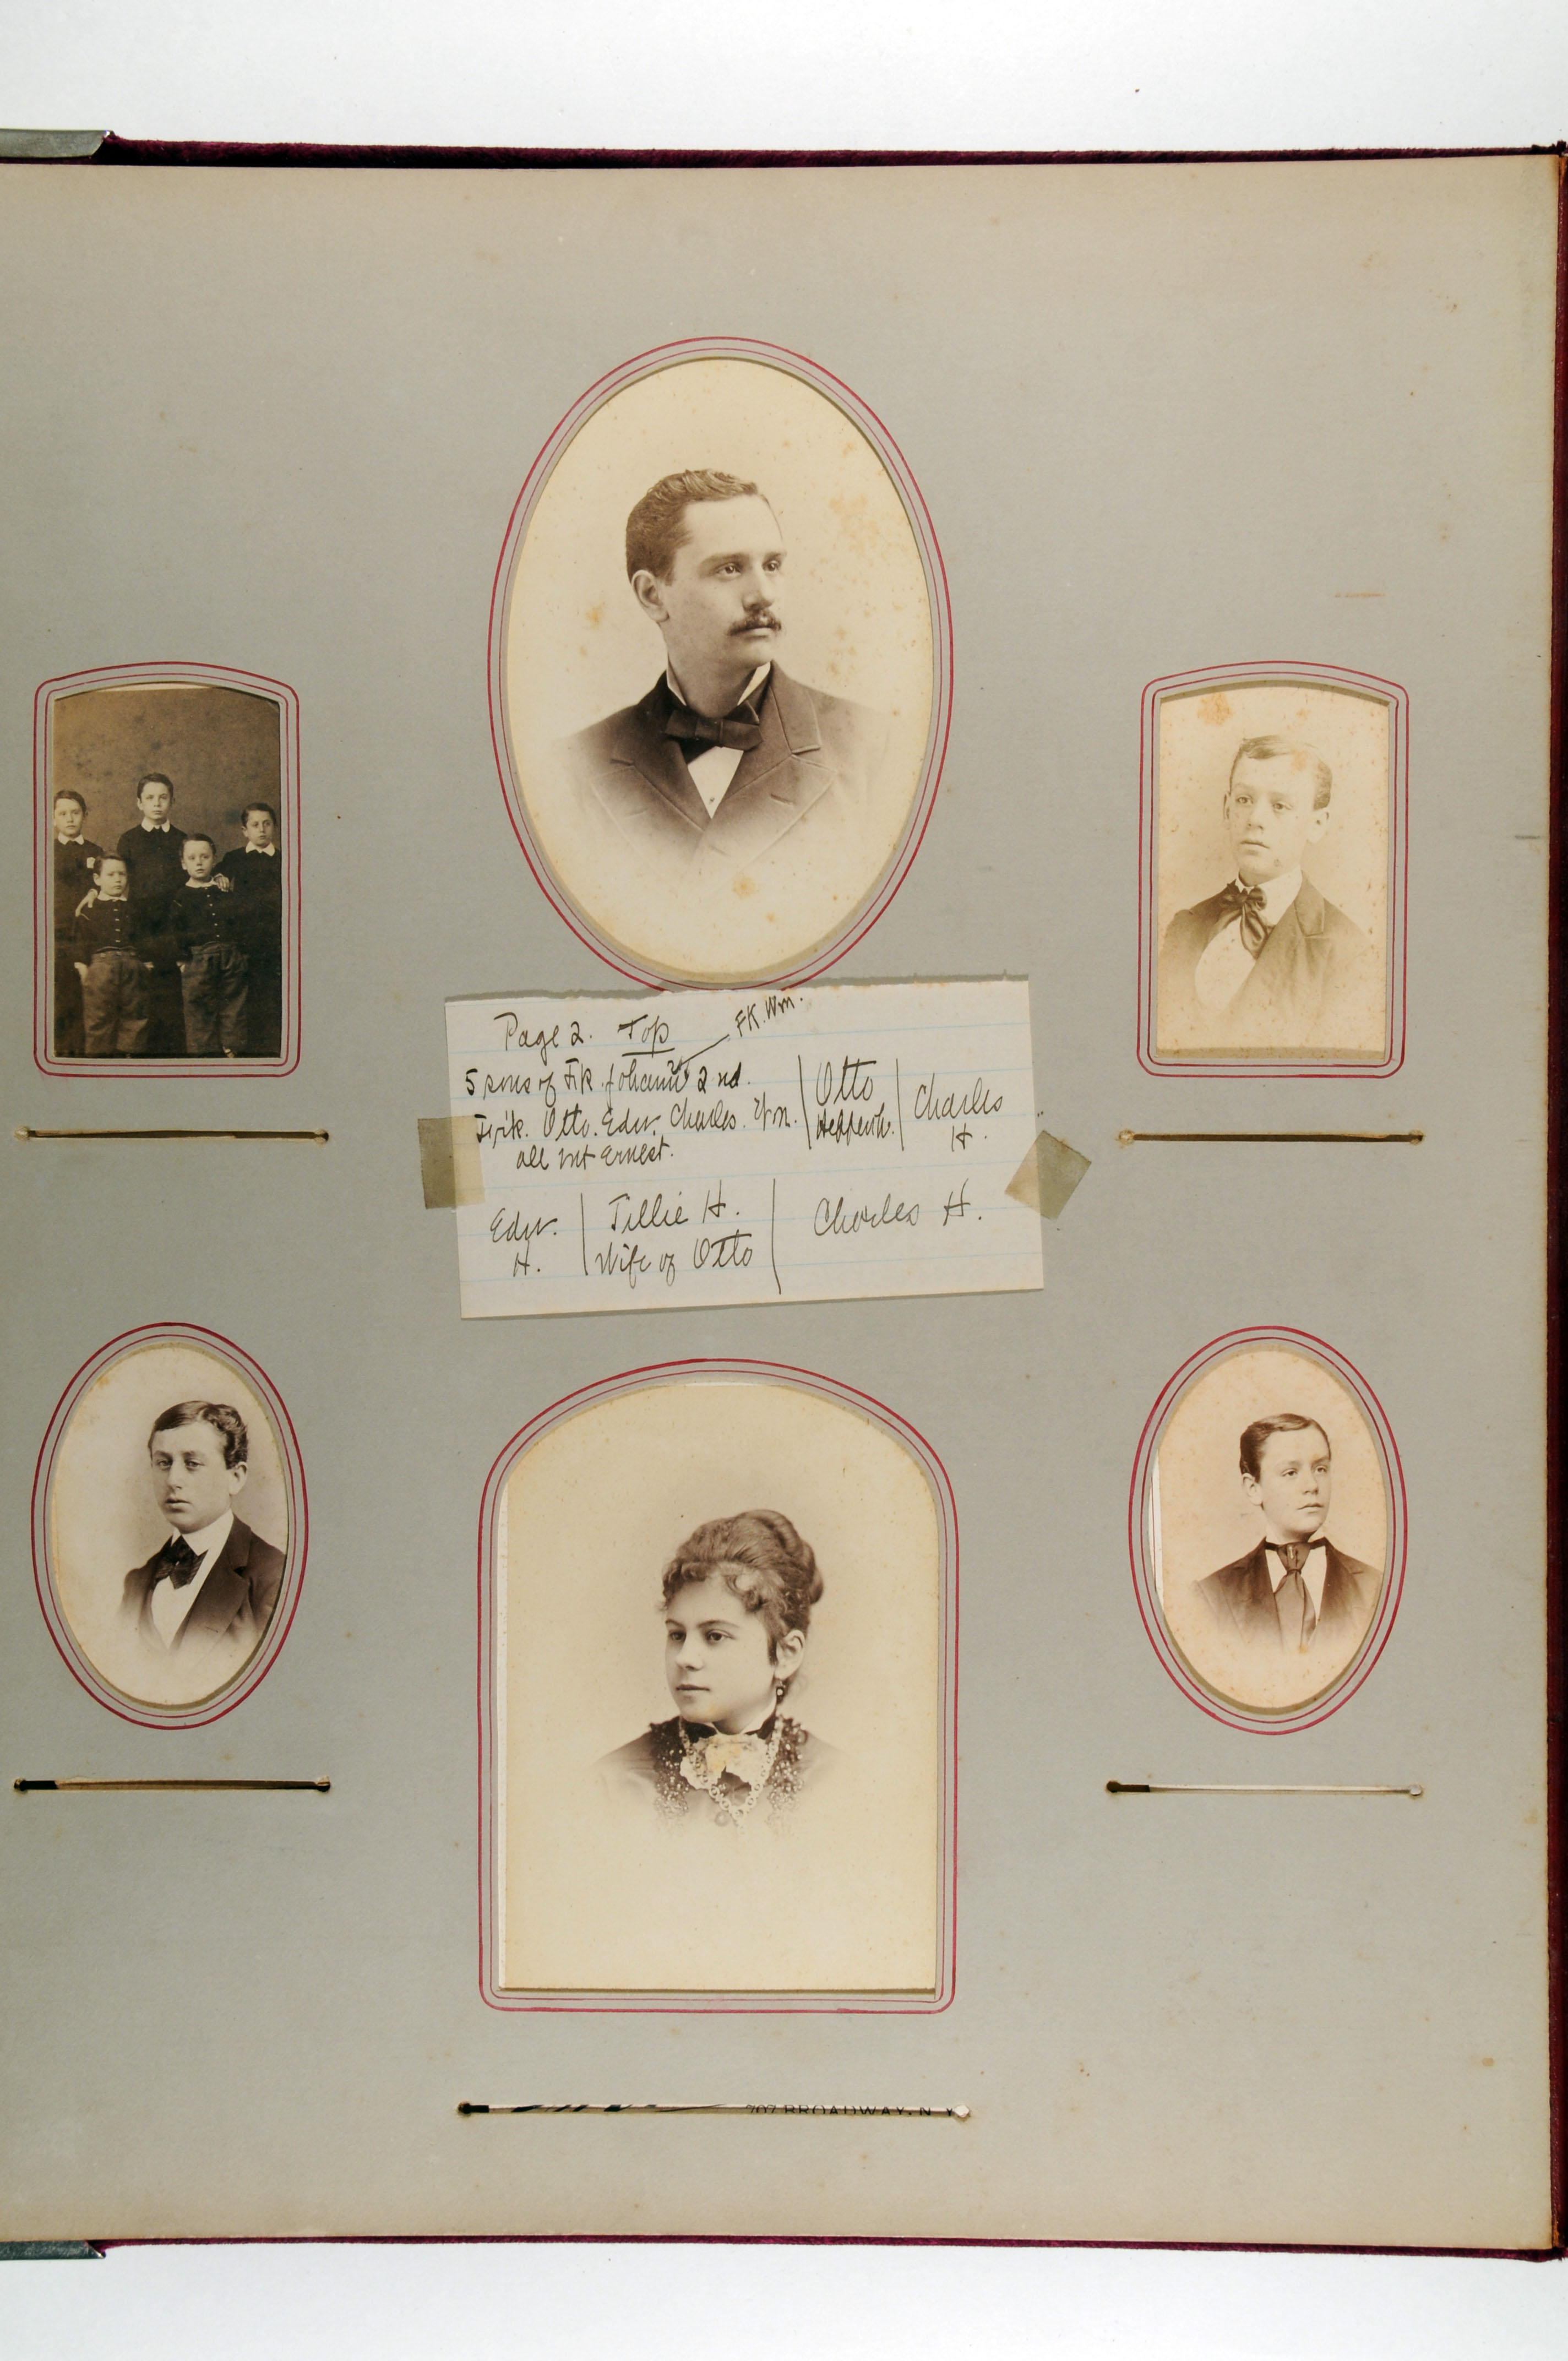 Page 2. Top
FK. Wm.
5 sons of Frk. Johann 2nd.
Frk. Otto. Edw. Charles. Wm.
all but Ernest.
Otto
Charles
H.
Edw.
H.
Tillie H.
Wife of Otto
Charles H.
707 BROADWAY, N.Y.